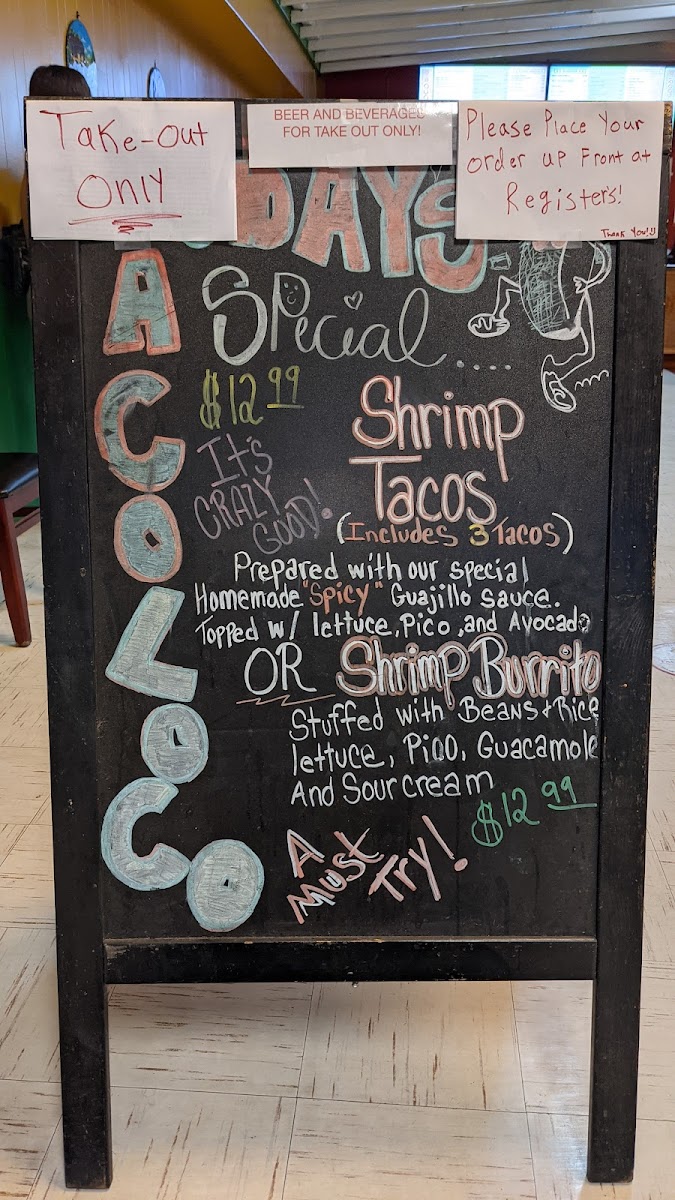 Take-Out
Only
BEER AND BEVERAGES
FOR TAKE OUT ONLY!
Please Place Your
order up Front at
Registers!
Thank You!!
DAYS
Special.....
ACO LOCO
$12.99
It's
CRAZY
GOOD!
Shrimp
Tacos
(Includes 3 Tacos)
Prepared with our special
Homemade "Spicy" Guajillo sauce.
Topped w/ lettuce, Pico, and Avocado
OR Shrimp Burrito
Stuffed with Beans + Rice
lettuce, Pico, Guacamole
And Sour cream
$12.99
A
Must
Try!